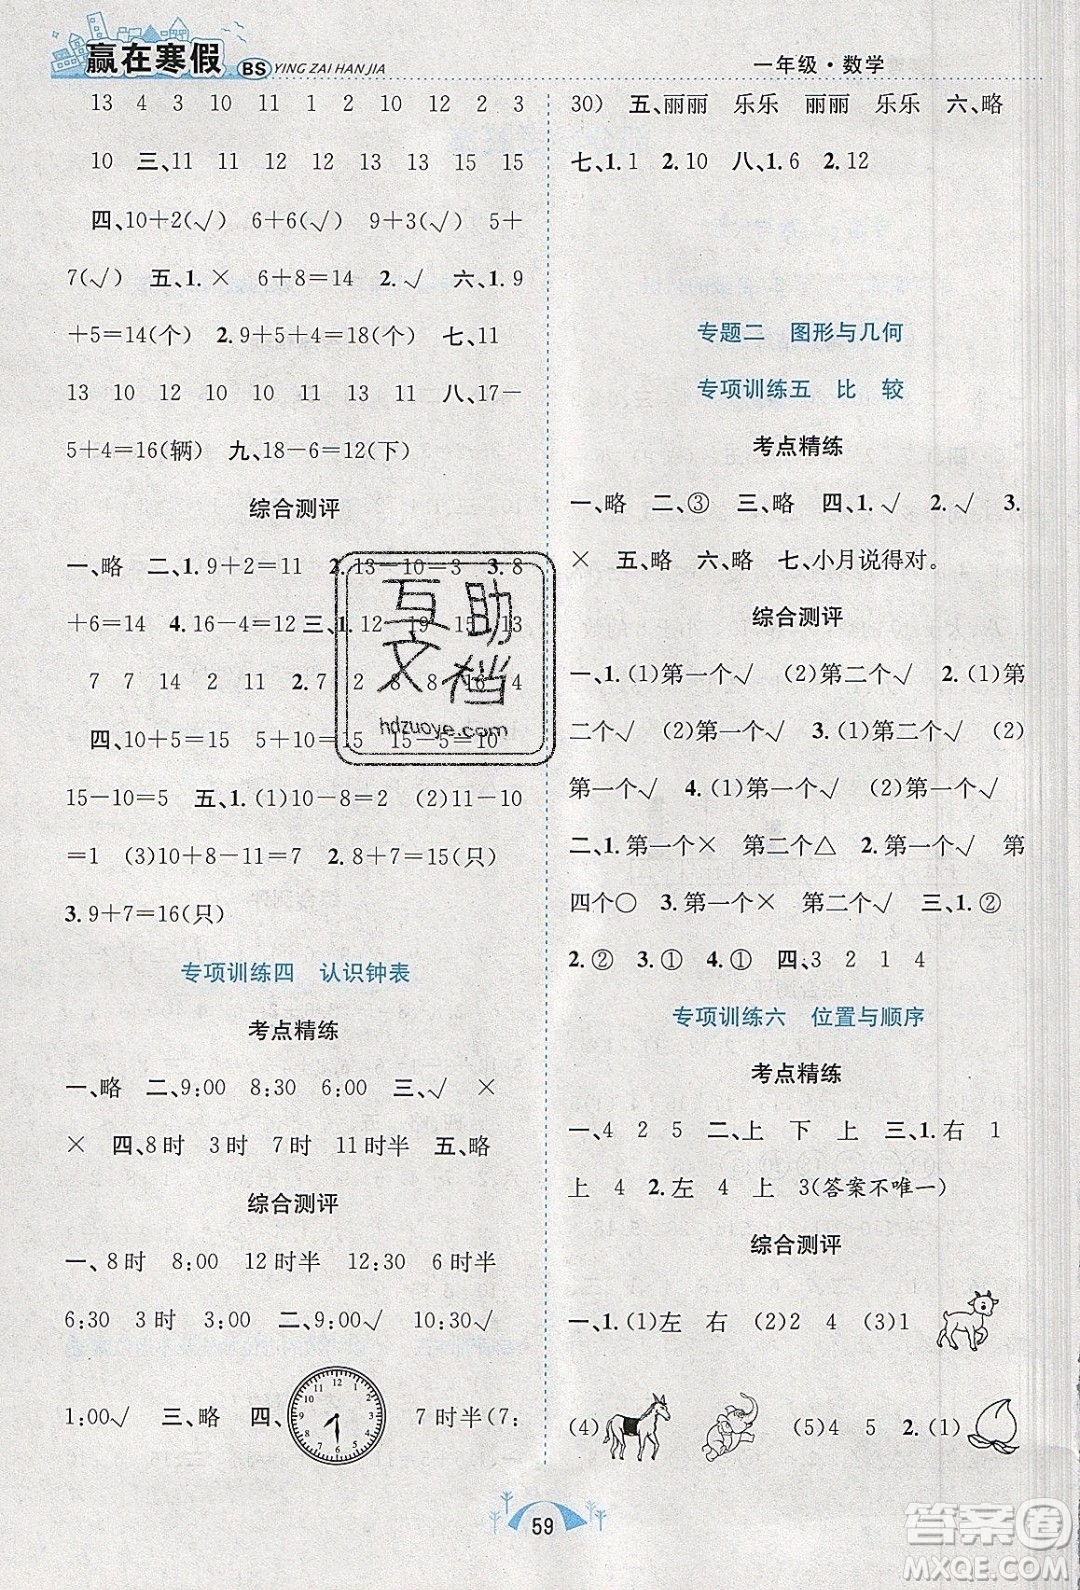 赢在寒假 BS YING ZAI HAN JIA
一年级·数学
13 4 3 10 10 1 12 12 2 3
10 三、11 11 12 13 14 15 15
四、10+2(√) 6+6(√) 9+3(√) 5+
7(√) 五、1. × 6+8=14 2. √ 六、1. 9
+5=14(个) 2. 9+5+4=18(个) 七、11
13 10 12 10 10 11 八、17-
5+4=16(辆) 九、18-6=12(下)
综合测评
一、略 二、1. 9+2=11 2. 13-10=3 3. 8
+6=14 4. 16-4=12 三、1. 12 19 15 13
7 7 14 2 11 2. 7 2 8 8 16 4
四、10+5=15 5+10=15 15-5=10
15-10=5 五、1. (1)10-8=2 (2)11-10
=1 (3)10+8-11=7 2. 8+7=15(只)
3. 9+7=16(只)
专项训练四 认识钟表
考点精练
一、略 二、9:00 8:30 6:00 三、√ ×
× 四、8时 3时 7时 11时半 五、略
综合测评
一、8时 8:00 12时半 12:30 6时半
6:30 3时 3:00 二、9:00√ 10:30√
1:00√ 三、略 四、
12 1 2 3 4 5 6 7 8 9 10 11
7时半(7:
30) 五、丽丽 乐乐 丽丽 乐乐 六、略
七、1. 1 2. 10 八、1. 6 2. 12
专题二 图形与几何
专项训练五 比 较
考点精练
一、略 二、③ 三、略 四、1. √ 2. √ 3.
× 五、略 六、略 七、小月说得对。
综合测评
一、1. (1)第一个√ (2)第二个√ 2. (1)第
二个√ (2)第一个√ 3. (1)第二个√ (2)
第一个√ 4. (1)第一个√ (2)第一个√
二、1. 第一个× 第二个△ 2. 第一个√ 第
四个○ 3. 第一个× 第二个√ 三、1. ②
2. ② 3. ① 4. ① 四、3 2 1 4
专项训练六 位置与顺序
考点精练
一、4 2 5 二、上 下 上 三、1. 右 1
上 4 2. 左 4 上 3(答案不唯一)
综合测评
一、1. (1)左 右 (2)2 4 (3)1
(4) (5)4 5 2. (1)
59
互助文档
hdzuoye.com
答案圈
MXQE.COM